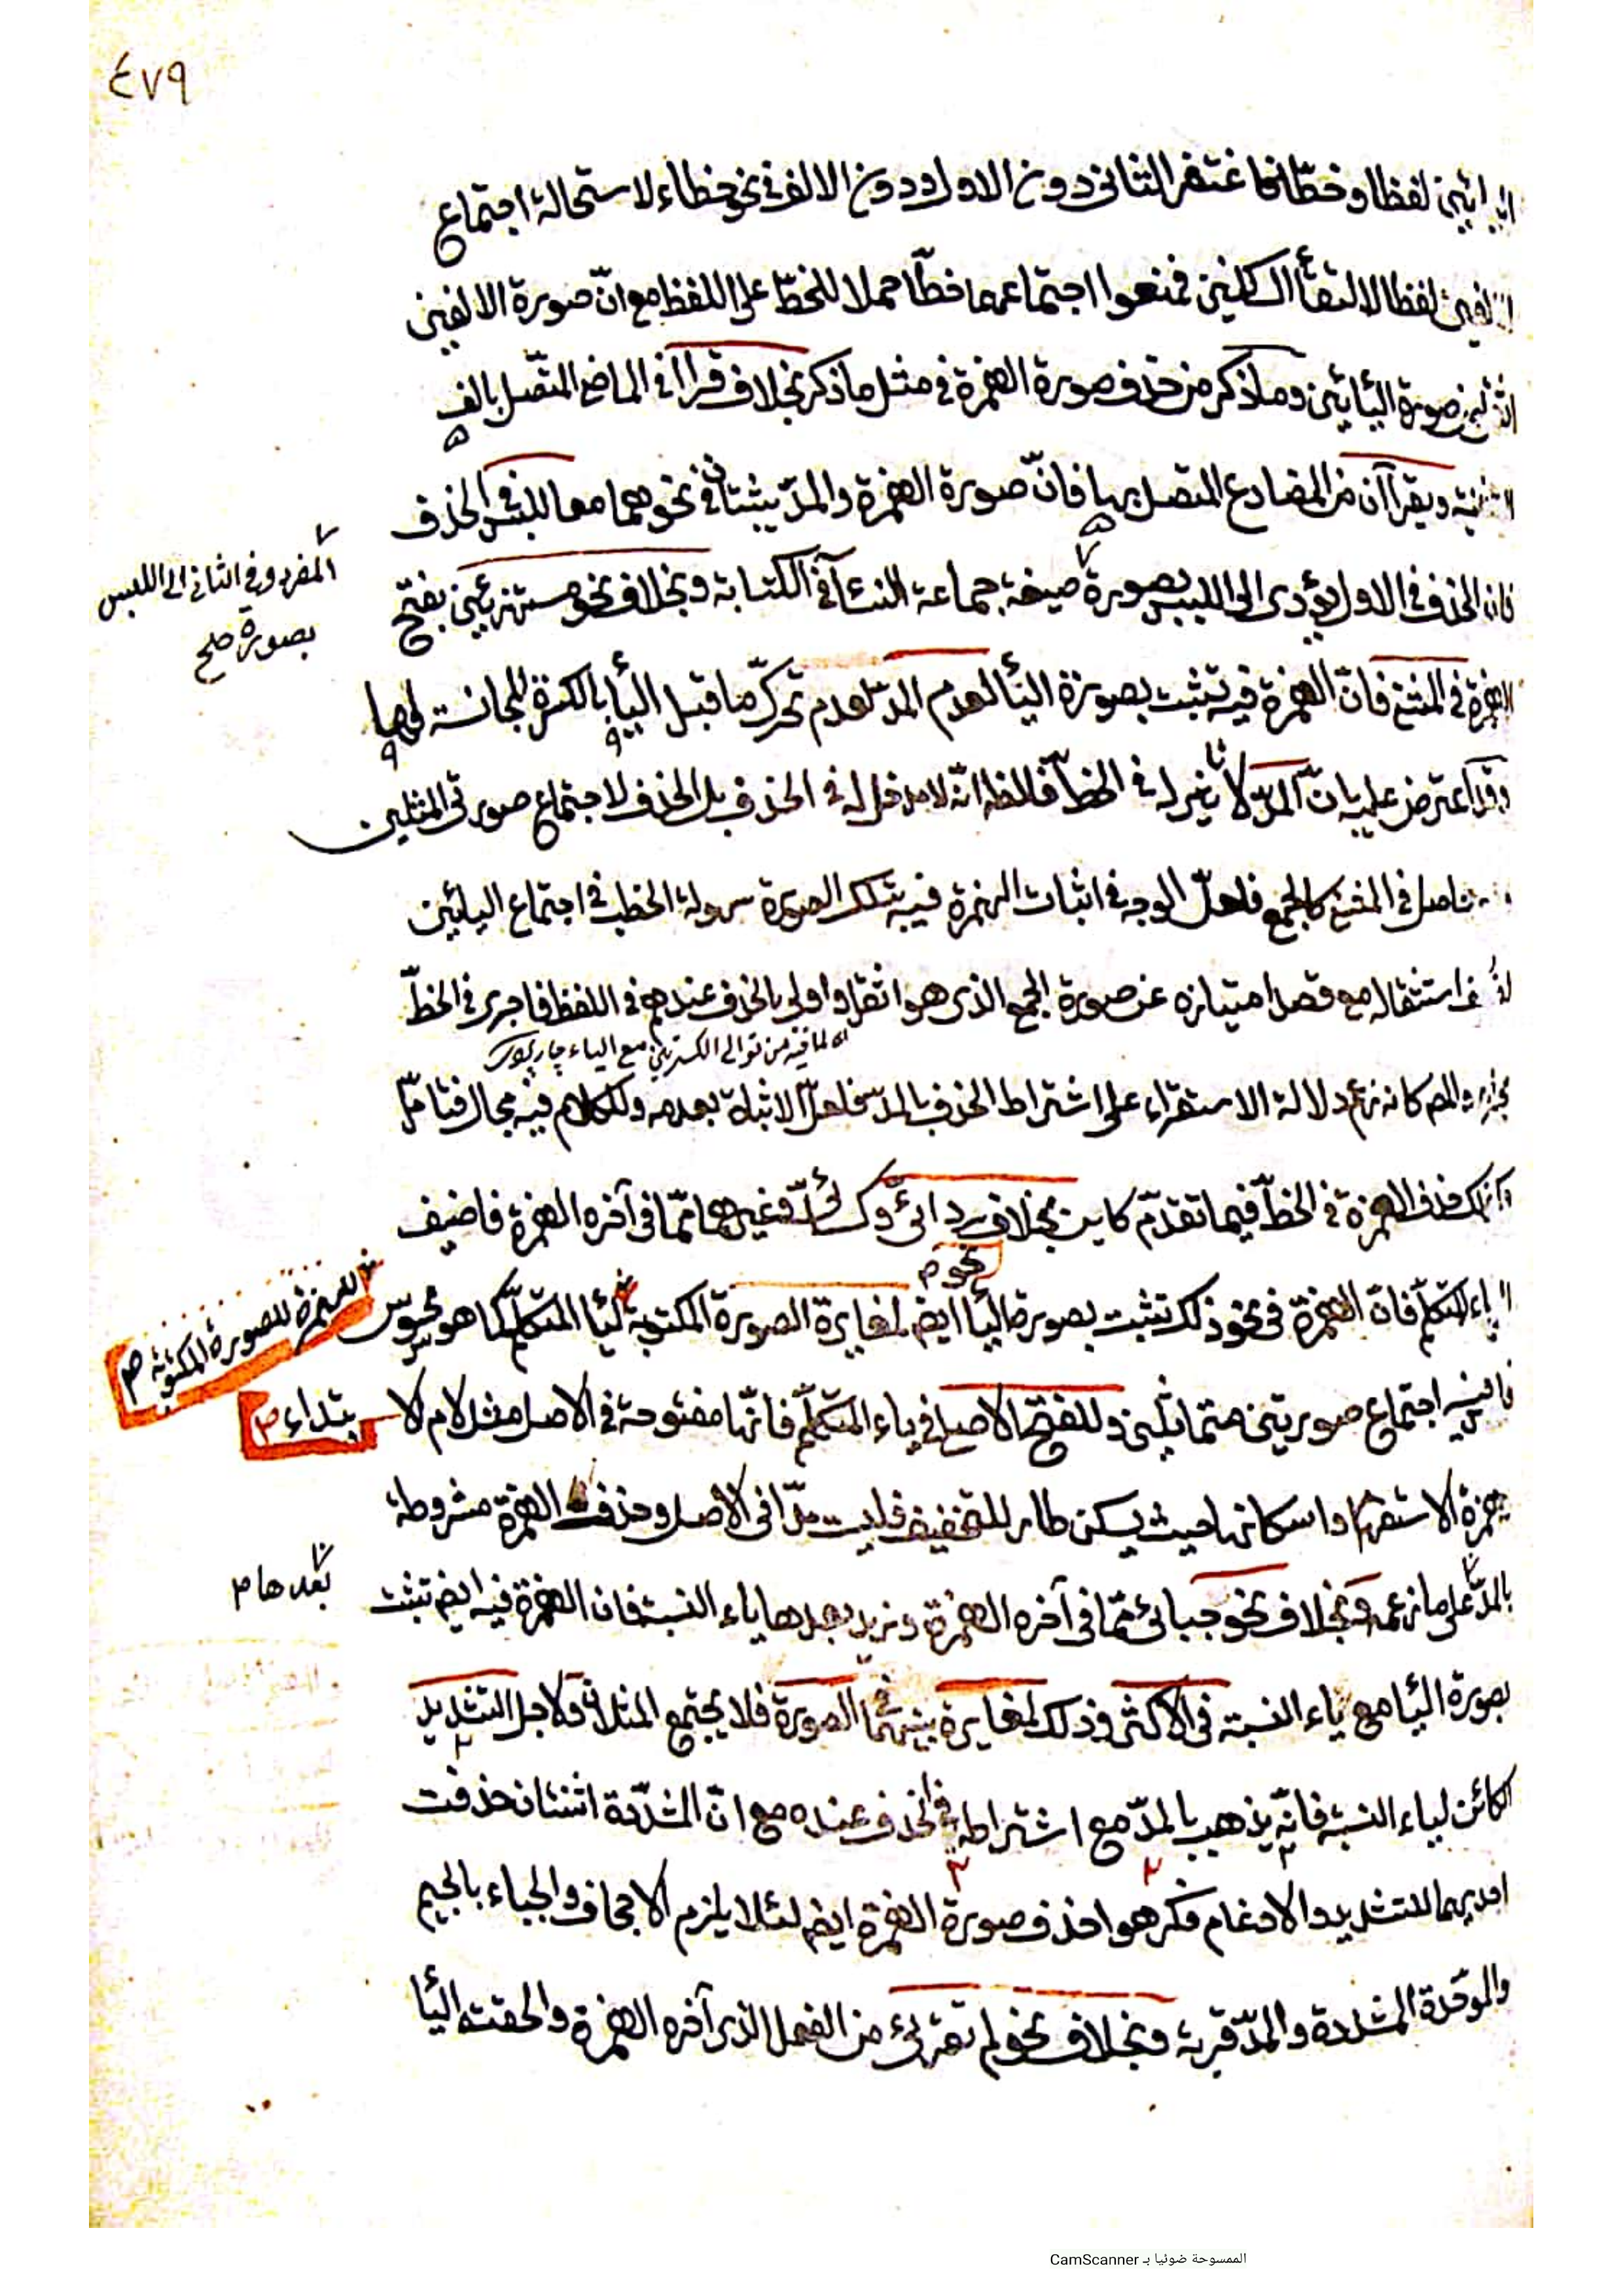 ٤٧٩
اليائين لفظا وخطّا فاغتفر الثانى دون الاول ودون الالف فى نحو خطاء لاستحالة اجتماع
الالفين لفظا لالتقاء الساكنين فمنعوا اجتماعهما خطّا حملا للخطّ على اللفظ مع انّ صورة الالفين
اثقل من صورة اليائين وما ذكر من حذف صورة الهمزة فى مثل ما ذكر بخلاف قراا فى الماضى المتّصل بالف
التثنية ويقراآن من المضارع المتصل بها فانّ صورة الهمزة والمدّ يثبتان فى نحوهما معا للبس فى الحذف
فان الحذف فى الاول يؤدى الى اللبس بصورة صيغة جماعة النساء فى الكتابة وبخلاف نحو مستهزئين بفتح
المفرد وفى الثانى الى اللبس
بصورة صح
الهمزة فى المثنى فانّ الهمزة فيه تثبت بصورة الياء لعدم المدّ لعدم تحرّك ما قبل الياء بالكسرة المجانسة لها
وقد اعترض عليه بانّ المدّ لا تأثير له فى الخطّ فالظ انّه لا مدخل له فى الحذف بل الحذف لاجتماع صورتى المثلين
حاصل فى المثنى كالجمع فلعلّ الوجه فى اثبات الهمزة فيه بتلك الصورة سهولة الخطب فى اجتماع اليائين
استثقاله مع قصد امتيازه عن صورة الجمع الذى هو اثقل واولى بالحذف عندهم فى اللفظ فاجرى فى الخطّ
لما فيه من توالى الكسرتين مع الياء جاربردى
مجراه والمص كانه زعم دلالة الاستقراء على اشتراط الحذف بالمدّ فلعلّ الاثبات بعدمه وللكلام فيه مجال فتامّل
وكذلك حذف الهمزة فى الخطّ فيما تقدّم كاين بخلاف ردائى وكسائى وغيرهما ممّا فى آخره الهمزة فاضيف
نحو م
الى ياء المتكلم فانّ الهمزة فى نحو ذلك تثبت بصورة الياء ايض لمغايرة الصورة المكتوبة لياء المتكلّم كما هو محسوس
للهمزة للصورة المكتوبة ص
فليس فيه اجتماع صورتين متماثلين وللفتح الاصلى فى ياء المتكلّم فانّها مفتوحة فى الاصل مثل لام الا
بتداء ص
وهمزة الاستفهام واسكانها حيث يسكن طار للتخفيف فليست مدّا فى الاصل وحذف الهمزة مشروطة
بالمدّ على ما زعمه وبخلاف نحو جبائى ممّا فى آخره الهمزة وزيد بعدها ياء النسبة فان الهمزة فيه ايض تثبت
بعدها م
بصورة الياء مع ياء النسبة فى الاكثر وذلك لمغايرة بينهما فى الصورة فلا يجتمع المثلان ولاجل التشديد
الكائن لياء النسبة فانّه يذهب بالمدّ مع اشتراطه فى الحذف عنده مع انّ المشدّدة اثنتان حذفت
احديهما للتشديد والادغام فكرهوا حذف صورة الهمزة ايض لئلا يلزم الاجحاف والجباء بالجيم
والموحّدة المشددة والمدّ قرية وبخلاف نحو لم تقرئى من الفعل الذى آخره الهمزة والحقته الياء
الممسوحة ضوئيا بـ CamScanner